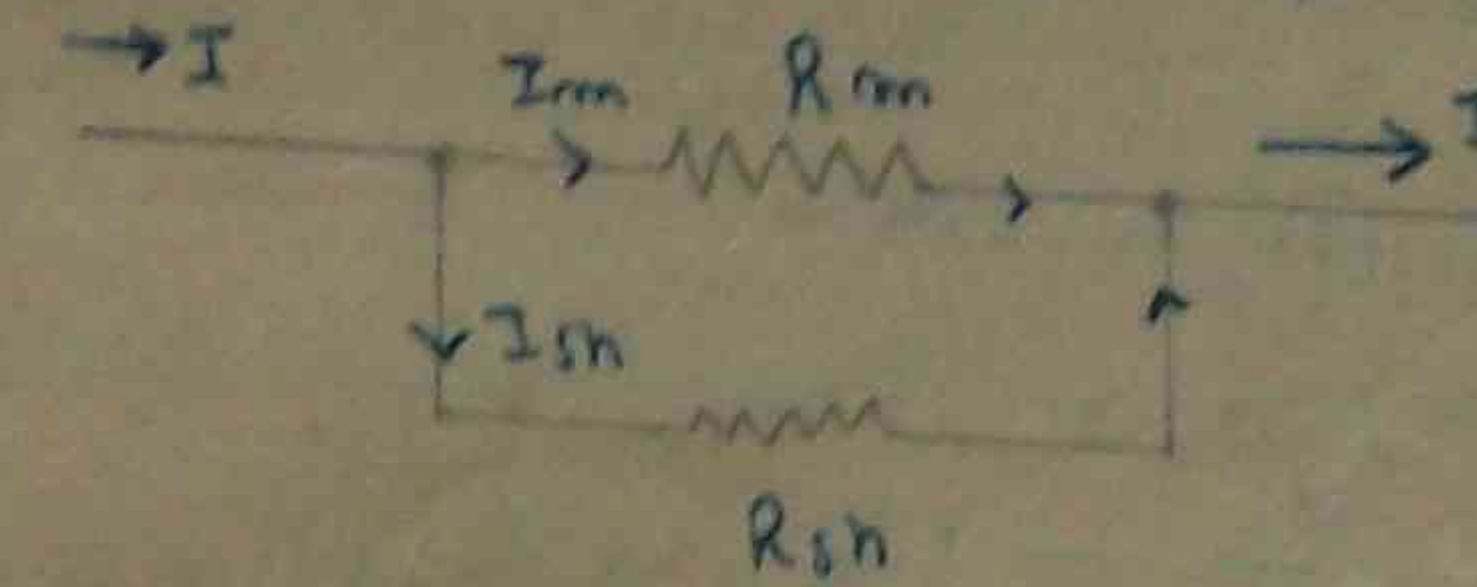 I
Im Rm
I
Ish
Rsh